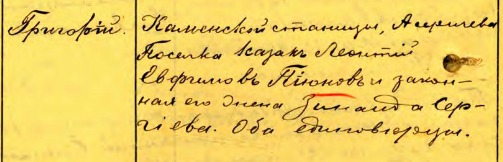 Григорій. Каменской станицы, Аникичева
Поселка казакъ Леонтій
Евфимовъ Піюновъ и закон-
ная его жена Зинаида Сер-
гіева. Оба единоверцы.